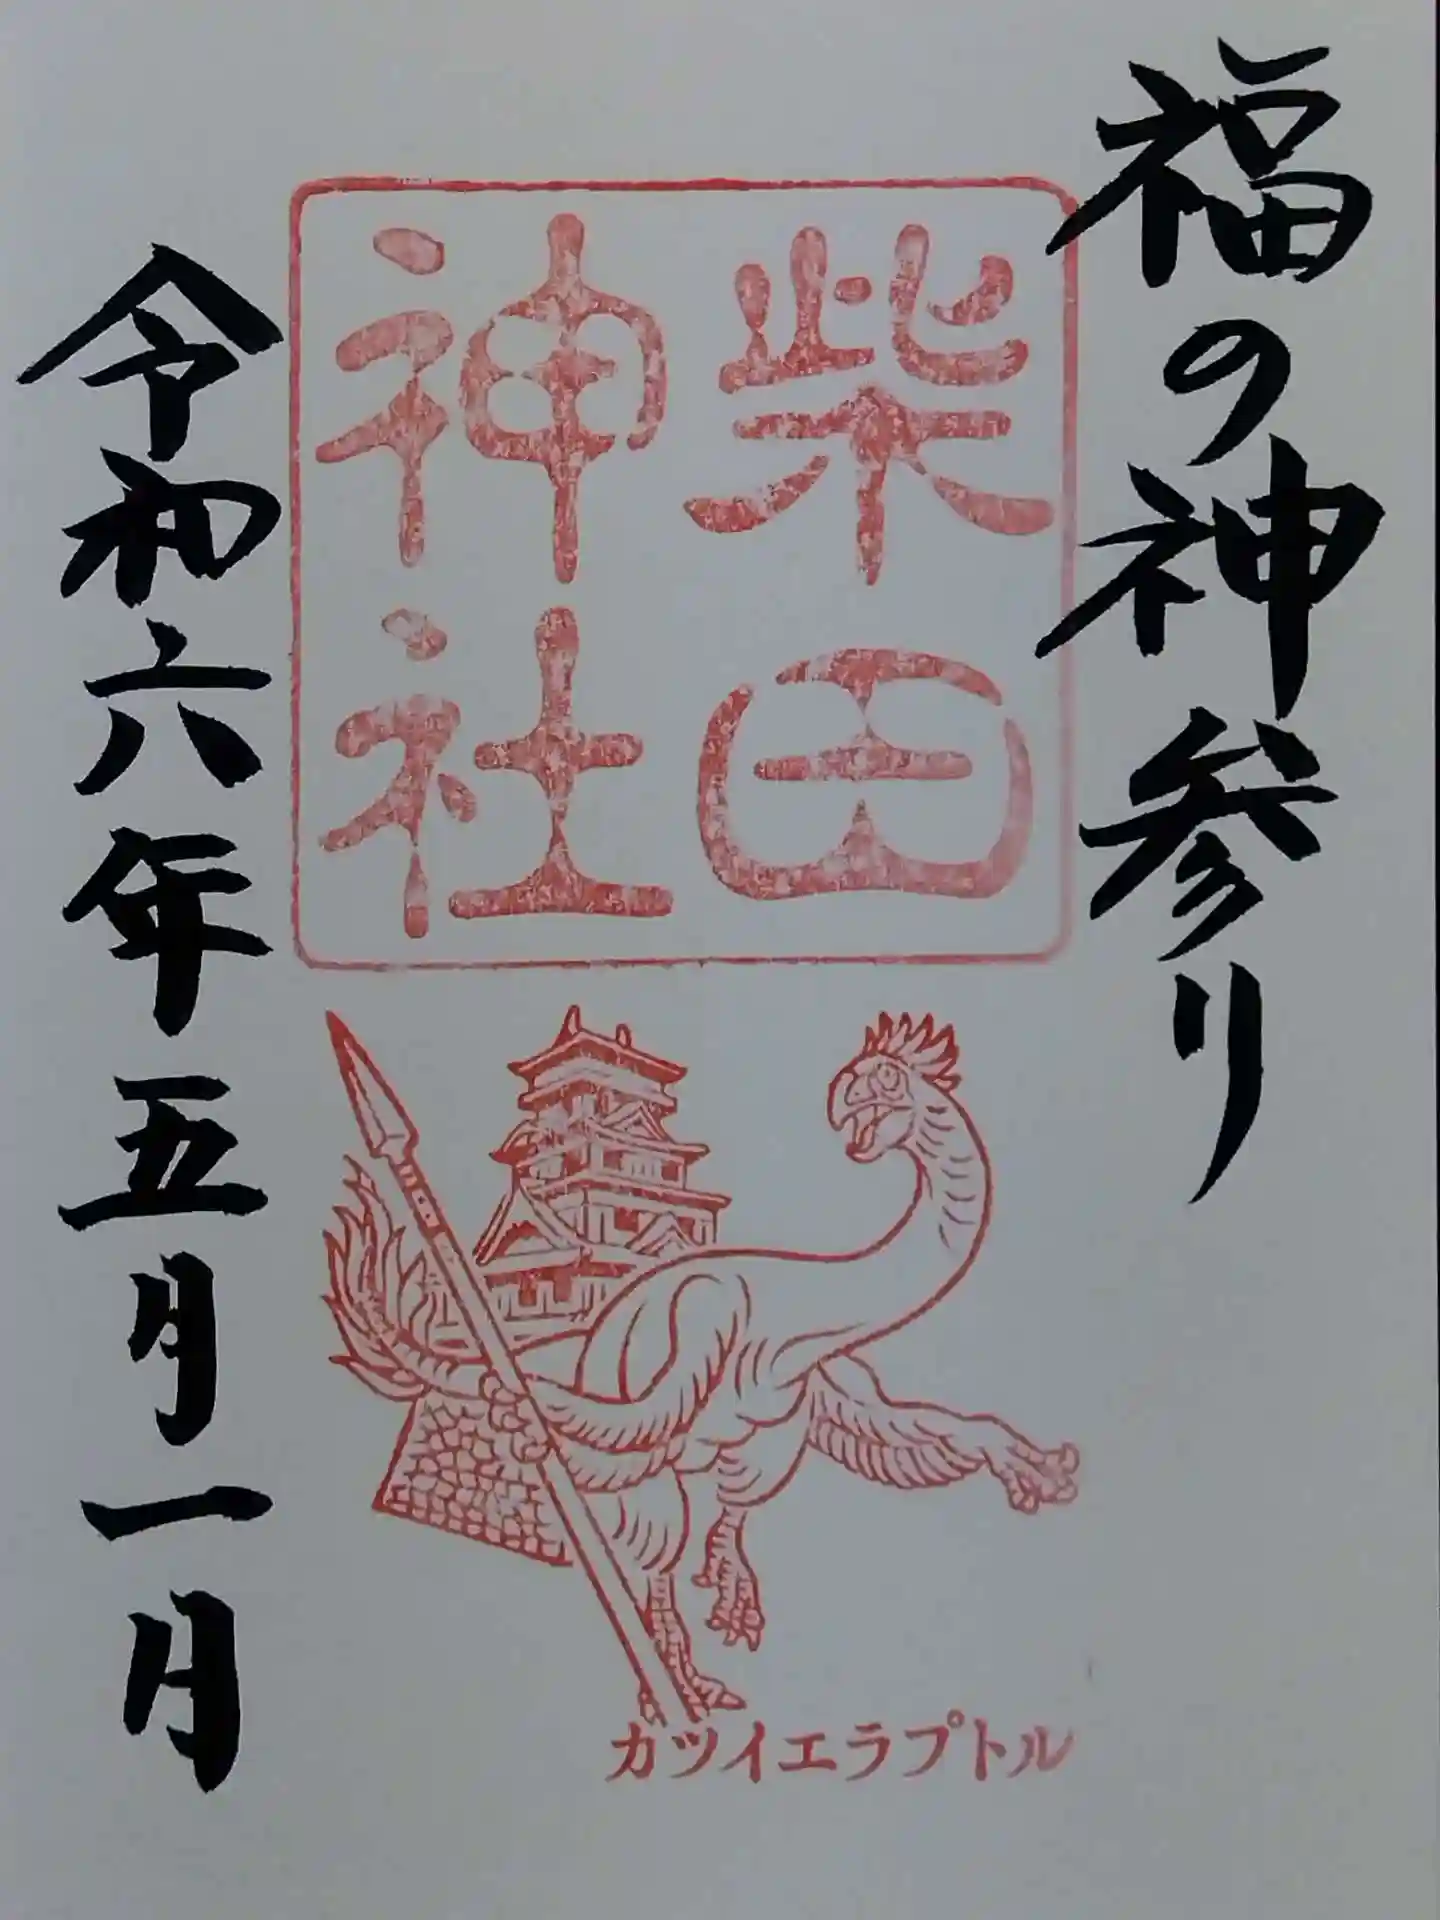 福の神参り
柴田
神社
カツイエラプトル
令和六年五月一日